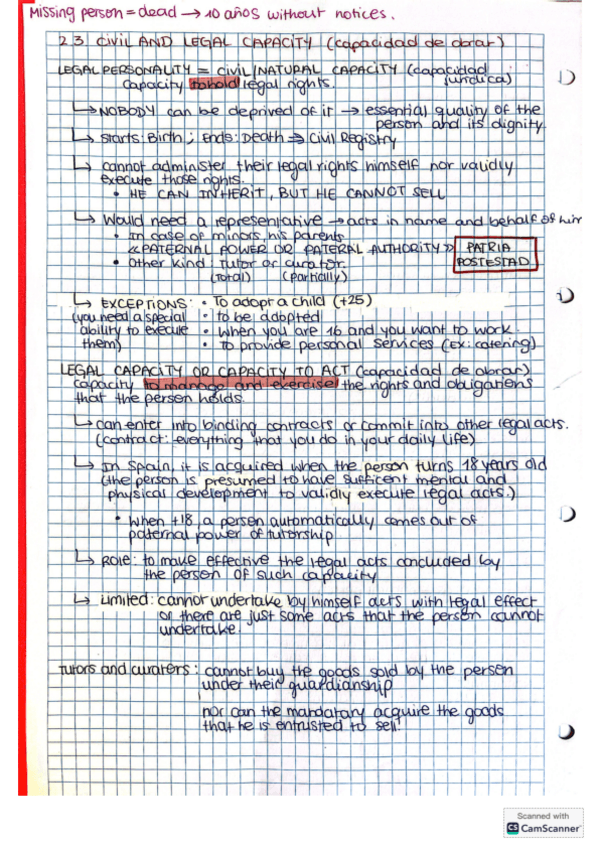 Missing person = dead → 10 años without notices.
2.3. CIVIL AND LEGAL CAPACITY (capacidad de obrar)
LEGAL PERSONALITY = CIVIL/NATURAL CAPACITY (capacidad jurídica)
capacity to hold legal rights.
↳ NOBODY can be deprived of it → essential quality of the person and its dignity
↳ Starts: Birth ; Ends: Death ⇒ Civil Registry
↳ cannot administer their legal rights himself nor validly
execute those rights.
• HE CAN INHERIT, BUT HE CANNOT SELL
↳ Would need a representative → acts in name and behalf of him
• In case of minors, his parents
«PATERNAL POWER OR PATERAL AUTHORITY» PATRIA POSTESTAD
• Other kind: Tutor or curator.
(Total) (partially)
↳ EXCEPTIONS: • To adopt a child (+25)
(you need a special • to be adopted
ability to execute • when you are 16 and you want to work.
them) • To provide personal services (Ex: catering)
LEGAL CAPACITY OR CAPACITY TO ACT (capacidad de obrar)
capacity to manage and exercise the rights and obligations
that the person holds.
↳ can enter into binding contracts or commit into other legal acts.
(contract: everything that you do in your daily life)
↳ In Spain, it is acquired when the person turns 18 years old
(the person is presumed to have sufficent mental and
physical development to validly execute legal acts.)
• When +18, a person automatically comes out of
paternal power of tutorship
↳ Role: to make effective the legal acts concluded by
the person of such capacity
↳ Limited: cannot undertake by himself acts with legal effect
or there are just some acts that the person cannot
undertake.
Tutors and curators: cannot buy the goods sold by the person
under their guardianship
nor can the mandatary acquire the goods
that he is entrusted to sell.
Scanned with
CS CamScanner